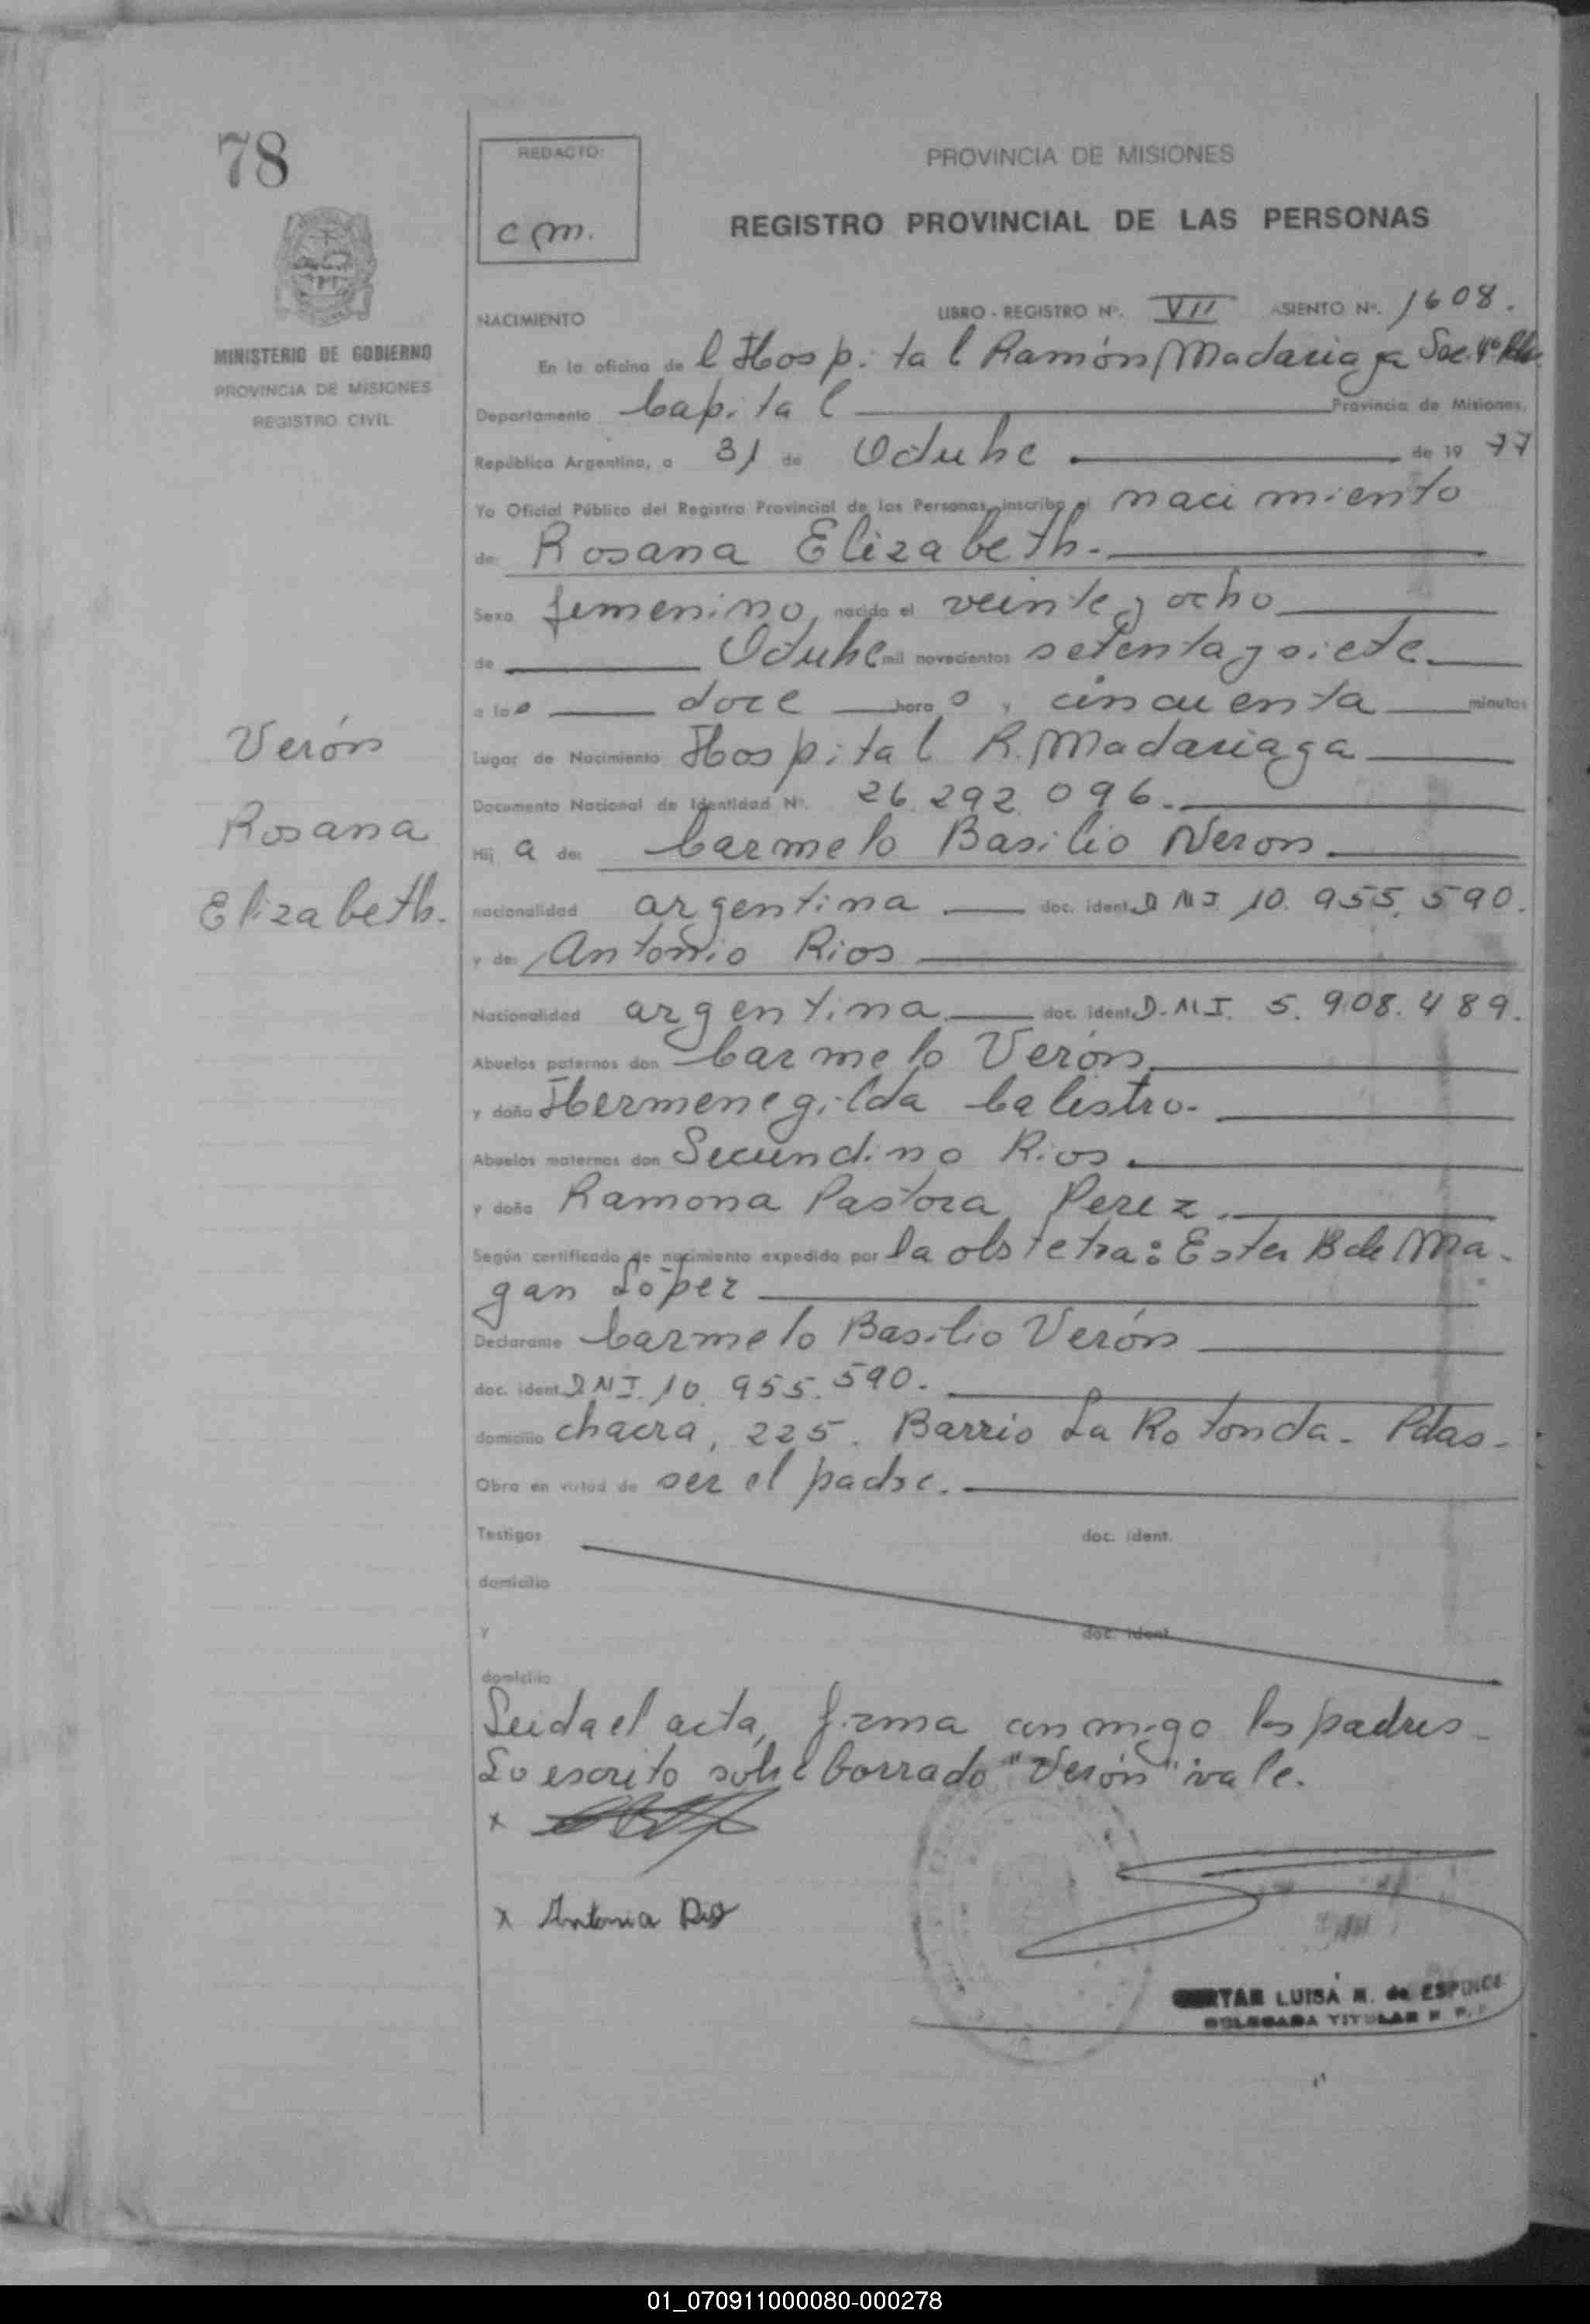 78
REDACTO:
cm.
PROVINCIA DE MISIONES
REGISTRO PROVINCIAL DE LAS PERSONAS
MINISTERIO DE GOBIERNO
PROVINCIA DE MISIONES
REGISTRO CIVIL
NACIMIENTO LIBRO - REGISTRO Nº. VII ASIENTO Nº. 1608.
En la oficina de l Hospital Ramón Madariaga Sec. 4º
Departamento Capital Provincia de Misiones,
República Argentina, a 31 de Octubre de 1977
Yo Oficial Público del Registro Provincial de las Personas, inscribo el nacimiento
de: Rosana Elizabeth.
Sexo femenino, nacido el veinte y ocho
de Octubre mil novecientos setenta y siete
a las doce hora s y cincuenta minutos
Lugar de Nacimiento Hospital R. Madariaga
Documento Nacional de Identidad Nº. 26.292.096.
Hij a de: Carmelo Basilio Veron
nacionalidad argentina doc. ident. D N I. 10.955.590.
y de: Antonio Rios
Nacionalidad argentina doc. ident. D.N.I. 5.908.489.
Abuelos paternos don Carmelo Verón
y doña Hermenegilda Calistro.
Abuelos maternos don Secundino Rios.
y doña Ramona Pastora Perez.
Según certificado de nacimiento expedido por la obstetra: Ester B de Ma-
gan López
Declarante Carmelo Basilio Verón
doc. ident. D N I. 10.955.590.
domicilio chacra, 225. Barrio La Rotonda. Pdas.
Obra en virtud de ser el padre.
Testigos doc. ident.
domicilio
y doc. ident.
domicilio
Leida el acta, firma conmigo los padres.
Lo escrito sobre borrado "Verón" vale.
x
x Antonia Rios
LUISA M. de ESPINOZA
DELEGADA TITULAR R. P.
Verón
Rosana
Elizabeth.
01_070911000080-000278